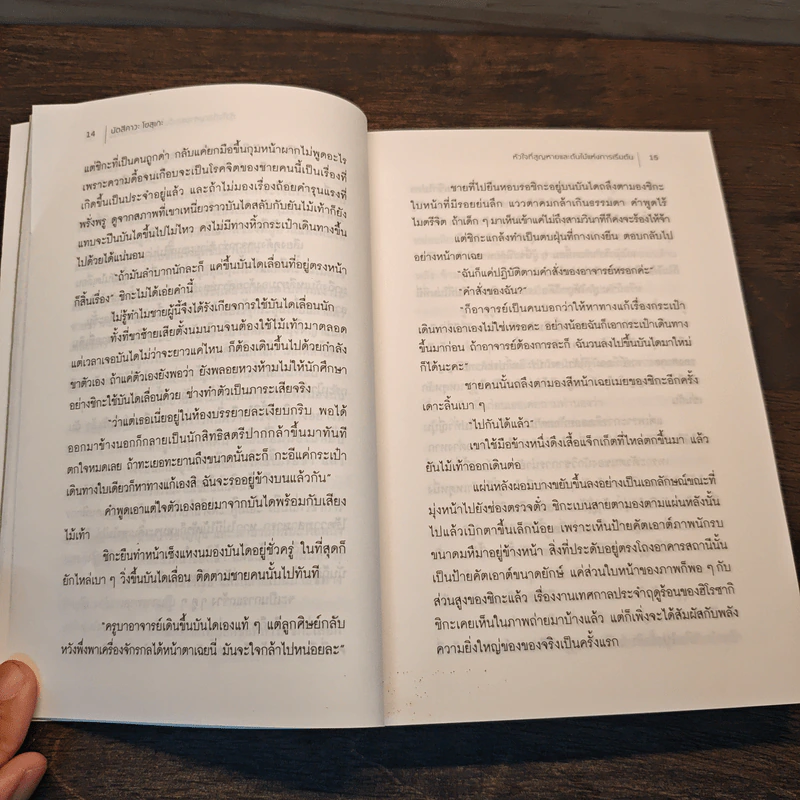 14 | นัตสึคาวะ โซสุเกะ
แต่ชิกะที่เป็นคนถูกด่า กลับแค่ยกมือขึ้นกุมหน้าผากไม่พูดอะไร
เพราะความดื้อจนเกือบจะเป็นโรคจิตของชายคนนี้เป็นเรื่องที่
เกิดขึ้นเป็นประจำอยู่แล้ว และถ้าไม่มองเรื่องถ้อยคำรุนแรงที่
พรั่งพรู ดูจากสภาพที่เขาเหนี่ยวราวบันไดสลับกับยันไม้เท้าก็ยัง
แทบจะปีนบันไดขึ้นไปไม่ไหว คงไม่มีทางหิ้วกระเป๋าเดินทางขึ้น
ไปด้วยได้แน่นอน
“ถ้ามันลำบากนักละก็ แค่ขึ้นบันไดเลื่อนที่อยู่ตรงหน้า
ก็สิ้นเรื่อง” ชิกะไม่ได้เอ่ยคำนี้
ไม่รู้ทำไมชายผู้นี้จึงได้รังเกียจการใช้บันไดเลื่อนนัก
ทั้งที่ขาซ้ายเสียตั้งนมนานจนต้องใช้ไม้เท้ามาตลอด
แต่เวลาเจอบันไดไม่ว่าจะยาวแค่ไหน ก็ต้องเดินขึ้นไปด้วยกำลัง
ขาตัวเอง ถ้าแค่ตัวเองยังพอว่า ยังพลอยหวงห้ามไม่ให้นักศึกษา
อย่างชิกะใช้บันไดเลื่อนด้วย ช่างทำตัวเป็นภาระเสียจริง
“ว่าแต่เธอเนี่ยอยู่ในห้องบรรยายละเงียบกริบ พอได้
ออกมาข้างนอกก็กลายเป็นนักสิทธิสตรีปากกล้าขึ้นมาทันที
ตกใจหมดเลย ถ้าทะเยอทะยานถึงขนาดนั้นละก็ กะอีแค่กระเป๋า
เดินทางใบเดียวก็หาทางแก้เองสิ ฉันจะรออยู่ข้างบนแล้วกัน”
คำพูดเอาแต่ใจตัวเองลอยมาจากบันไดพร้อมกับเสียง
ไม้เท้า
ชิกะยืนทำหน้าเซ็งแหงนมองบันไดอยู่ชั่วครู่ ในที่สุดก็
ยักไหล่เบา ๆ วิ่งขึ้นบันไดเลื่อน ติดตามชายคนนั้นไปทันที
“ครูบาอาจารย์เดินขึ้นบันไดเองแท้ ๆ แต่ลูกศิษย์กลับ
หวังพึ่งพาเครื่องจักรกลได้หน้าตาเฉยนี่ มันจะใจกล้าไปหน่อยละ”
หัวใจที่สูญหายและต้นไม้แห่งการเริ่มต้น | 15
ชายที่ไปยืนหอบรอชิกะอยู่บนบันไดถลึงตามองชิกะ
ใบหน้าที่มีรอยย่นลึก แววตาคมกล้าเกินธรรมดา คำพูดไร้
ไมตรีจิต ถ้าเด็ก ๆ มาเห็นเข้าแค่ไม่ถึงสามวินาทีก็คงจะร้องไห้จ้า
แต่ชิกะแกล้งทำเป็นตบฝุ่นที่กางเกงยีน ตอบกลับไป
อย่างหน้าตาเฉย
“ฉันก็แค่ปฏิบัติตามคำสั่งของอาจารย์หรอกค่ะ”
“คำสั่งของฉัน?”
“ก็อาจารย์เป็นคนบอกว่าให้หาทางแก้เรื่องกระเป๋า
เดินทางเอาเองไม่ใช่เหรอคะ อย่างน้อยฉันก็เอากระเป๋าเดินทาง
ขึ้นมาก่อน ถ้าอาจารย์ต้องการละก็ ฉันวนลงไปขึ้นบันไดมาใหม่
ก็ได้นะคะ”
ชายคนนั้นถลึงตามองสีหน้าเฉยเมยของชิกะอีกครั้ง
เดาะลิ้นเบา ๆ
“ไปกันได้แล้ว”
เขาใช้มือข้างหนึ่งดึงเสื้อแจ็กเก็ตที่ไหล่ตกขึ้นมา แล้ว
ยันไม้เท้าออกเดินต่อ
แผ่นหลังผอมบางขยับขึ้นลงอย่างเป็นเอกลักษณ์ขณะที่
มุ่งหน้าไปยังช่องตรวจตั๋ว ชิกะเบนสายตามองตามแผ่นหลังนั้น
ไปแล้วเบิกตาขึ้นเล็กน้อย เพราะเห็นป้ายคัตเอาต์ภาพนักรบ
ขนาดมหึมาอยู่ข้างหน้า สิ่งที่ประดับอยู่ตรงโถงอาคารสถานีนั้น
เป็นป้ายคัตเอาต์ขนาดยักษ์ แค่ส่วนใบหน้าของภาพก็พอ ๆ กับ
ส่วนสูงของชิกะแล้ว เรื่องงานเทศกาลประจำฤดูร้อนของฮิโรซากิ
ชิกะเคยเห็นในภาพถ่ายมาบ้างแล้ว แต่ก็เพิ่งจะได้สัมผัสกับพลัง
ความยิ่งใหญ่ของของจริงเป็นครั้งแรก